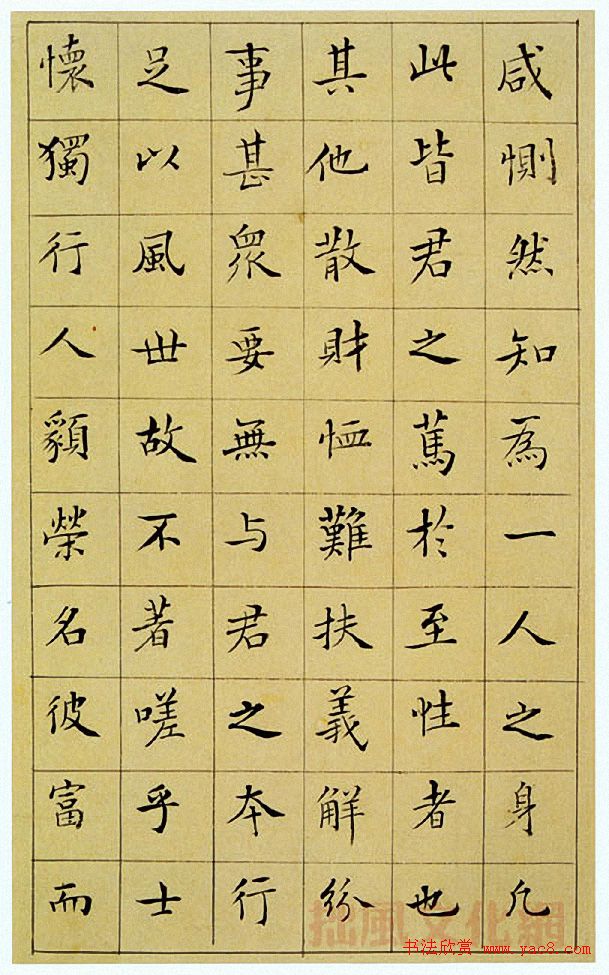 咸惻然知為一人之身凡
此皆君之篤於至性者也
其他散財恤難扶義解紛
事甚眾要無与君之本行
足以風世故不著嗟乎士
懷獨行人顡榮名彼富而
拙風文化網
书法欣赏 www.yac8.com